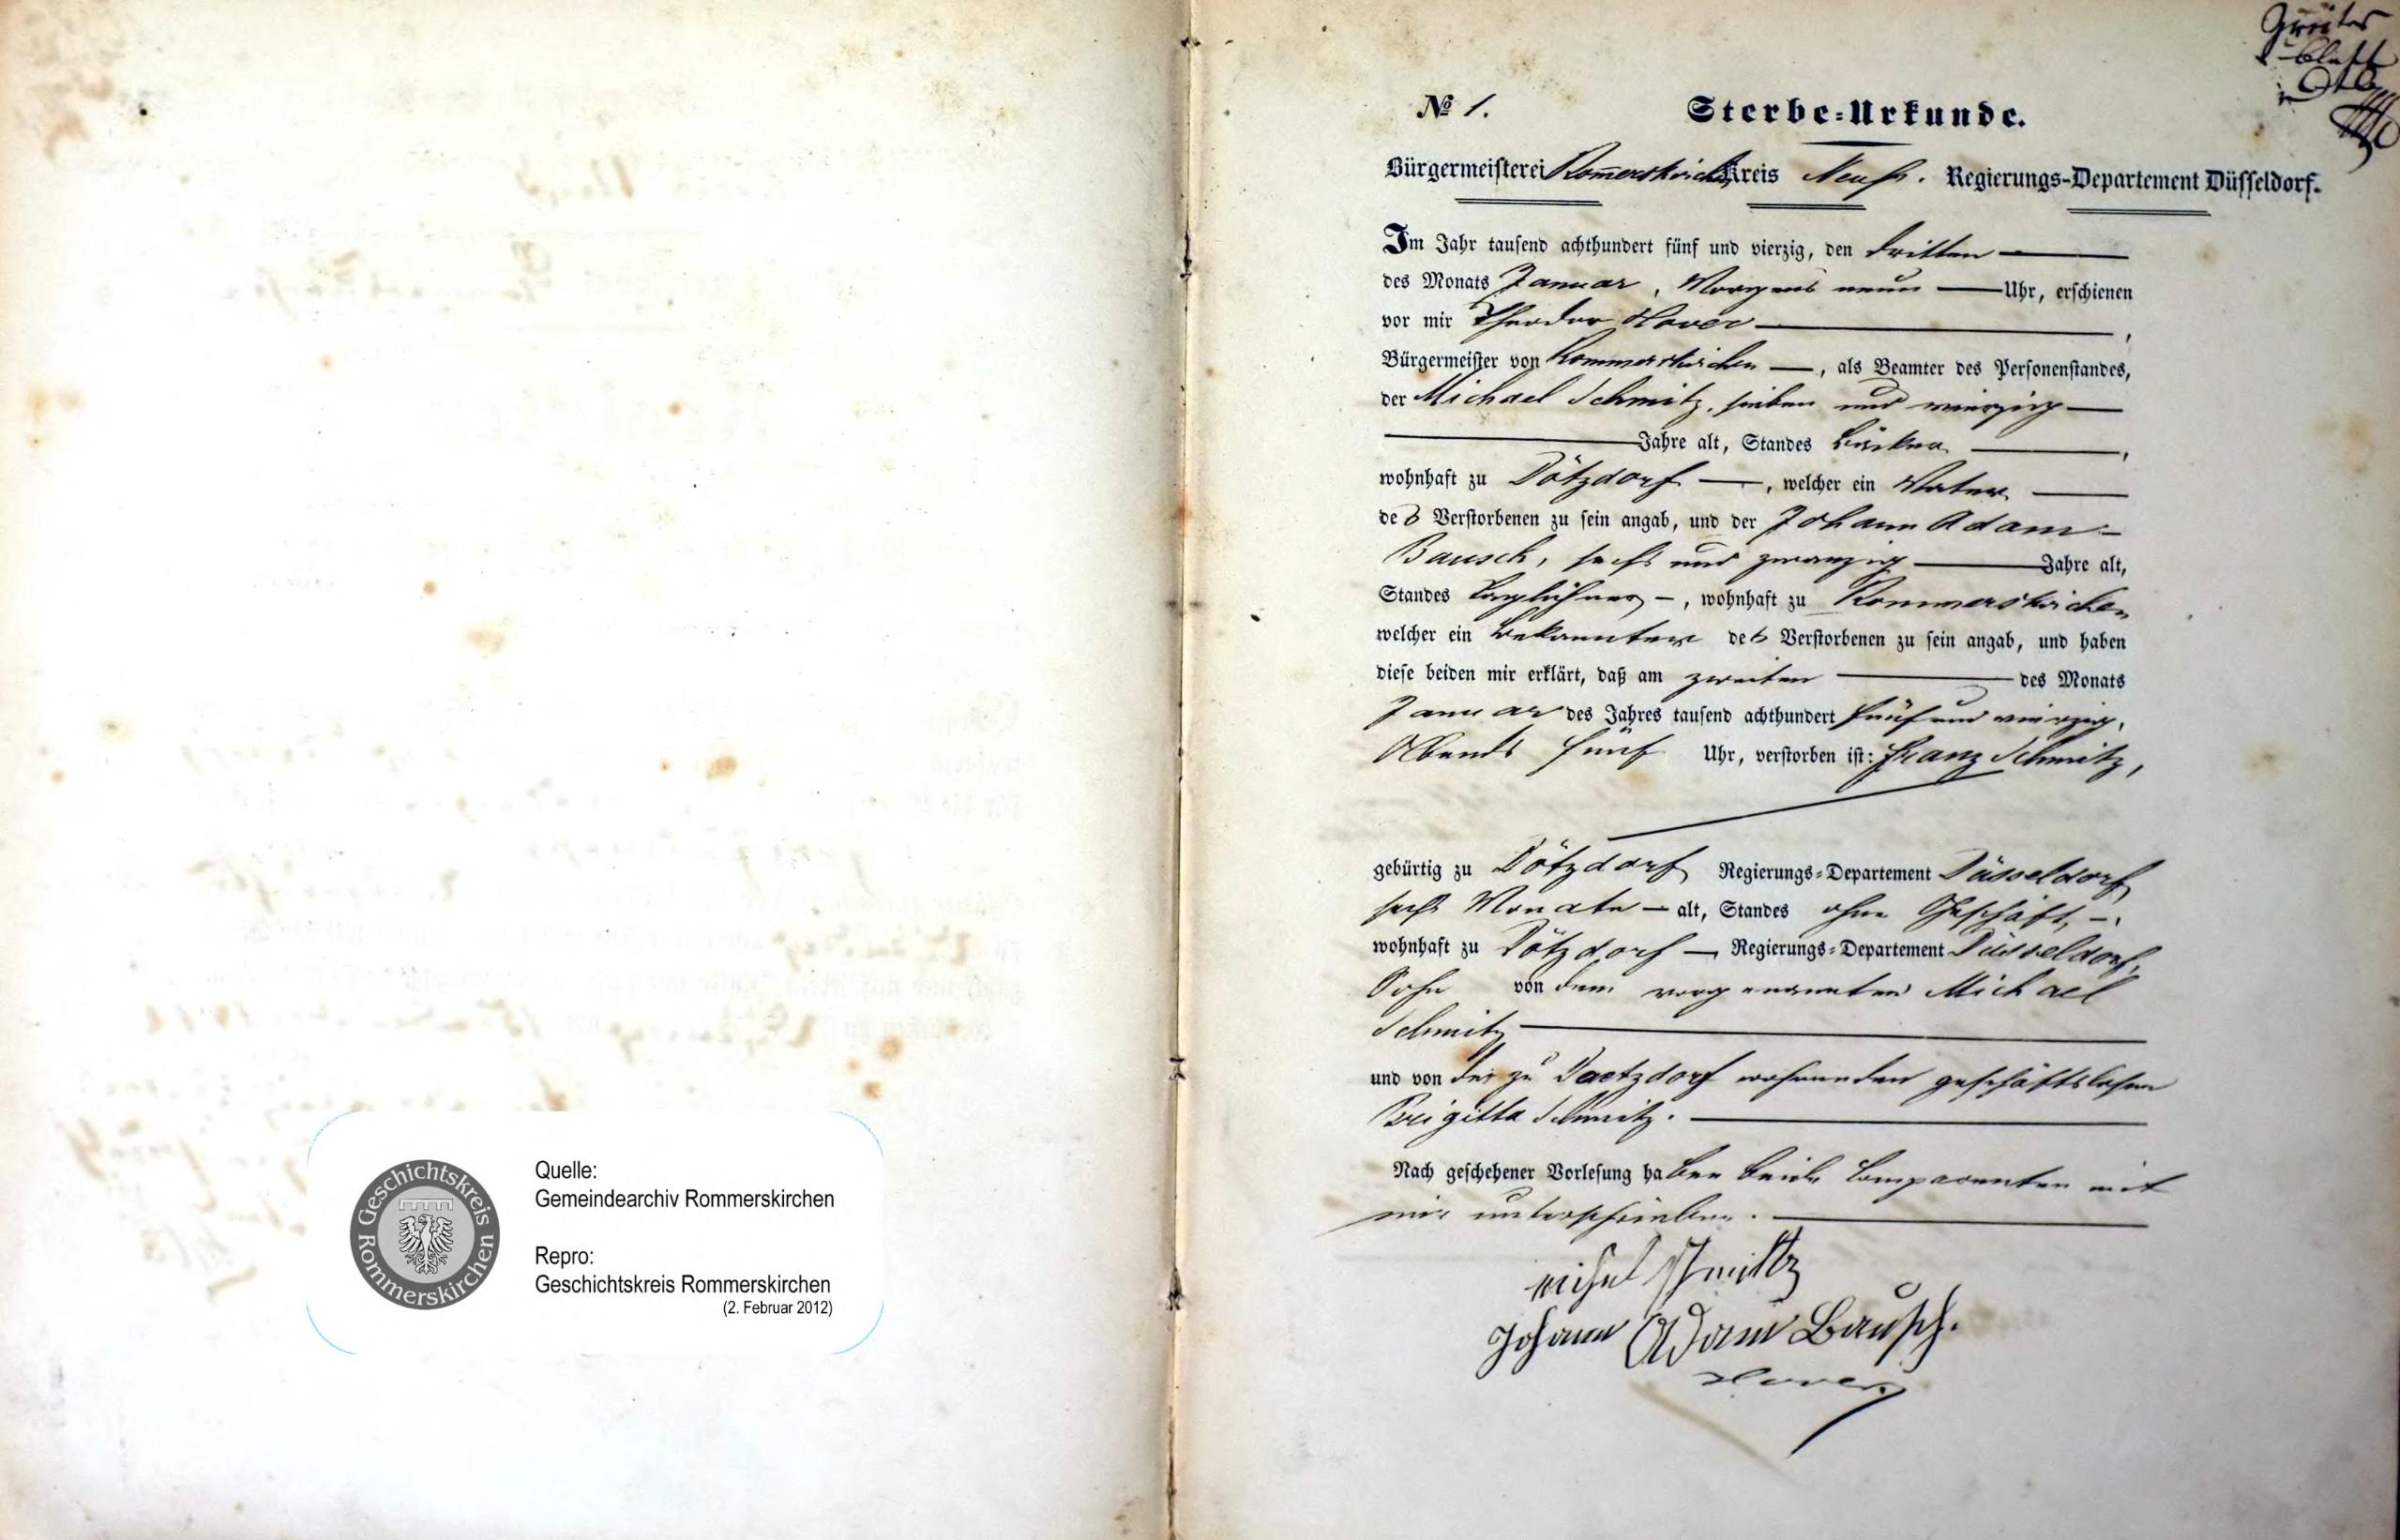 Quelle:
Gemeindearchiv Rommerskirchen
Repro:
Geschichtskreis Rommerskirchen
(2. Februar 2012)
Geschichtskreis
Rommerskirchen
Zweites
Blatt
№ 1.
Sterbe-Urkunde.
Bürgermeisterei Rom̅erskirchen Kreis Neuß. Regierungs-Departement Düsseldorf.
Im Jahr tausend achthundert fünf und vierzig, den dritten
des Monats Januar, Morgens neun Uhr, erschienen
vor mir Theodor Hover,
Bürgermeister von Rommerskirchen, als Beamter des Personenstandes,
der Michael Schmitz, sieben und vierzig
Jahre alt, Standes Bäcker,
wohnhaft zu Dötzdorf, welcher ein Vater
des Verstorbenen zu sein angab, und der Johann Adam
Bausch, sechs und zwanzig Jahre alt,
Standes Taglöhner, wohnhaft zu Rommerskirchen
welcher ein Bekannter des Verstorbenen zu sein angab, und haben
diese beiden mir erklärt, daß am zweiten des Monats
Januar des Jahres tausend achthundert fünf und vierzig,
Abends fünf Uhr, verstorben ist: Franz Schmitz,
gebürtig zu Dötzdorf Regierungs-Departement Düsseldorf
sechs Monate alt, Standes ohne Geschäft,
wohnhaft zu Dötzdorf Regierungs-Departement Düsseldorf,
Sohn von dem vorgenannten Michael
Schmitz
und von der zu Daetzdorf wohnenden geschäftslosen
Brigitta Schmitz.
Nach geschehener Vorlesung haben beide Comparenten mit
mir unterschrieben.
Michel Schmittz
Johann Adam Bausch.
Hover